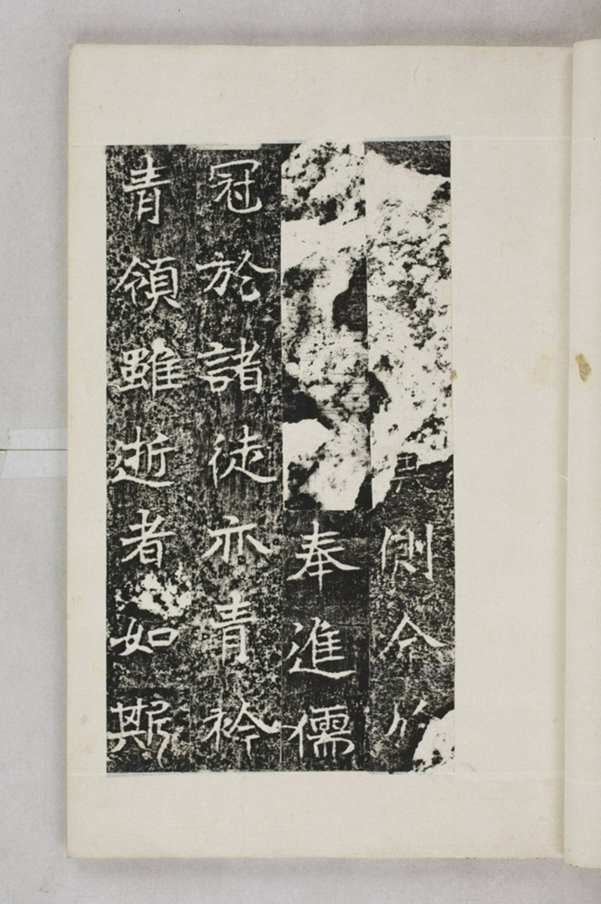 其側今於
奉進儒
冠於諸徒亦青衿
青領雖逝者如斯